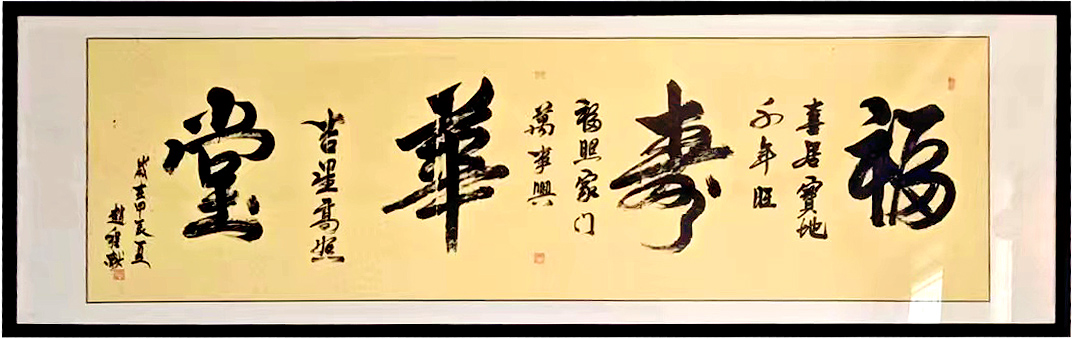 福
喜居寶地
千年旺
寿
福照家门
萬事興
華
吉星高照
堂
歲在甲辰夏
趙